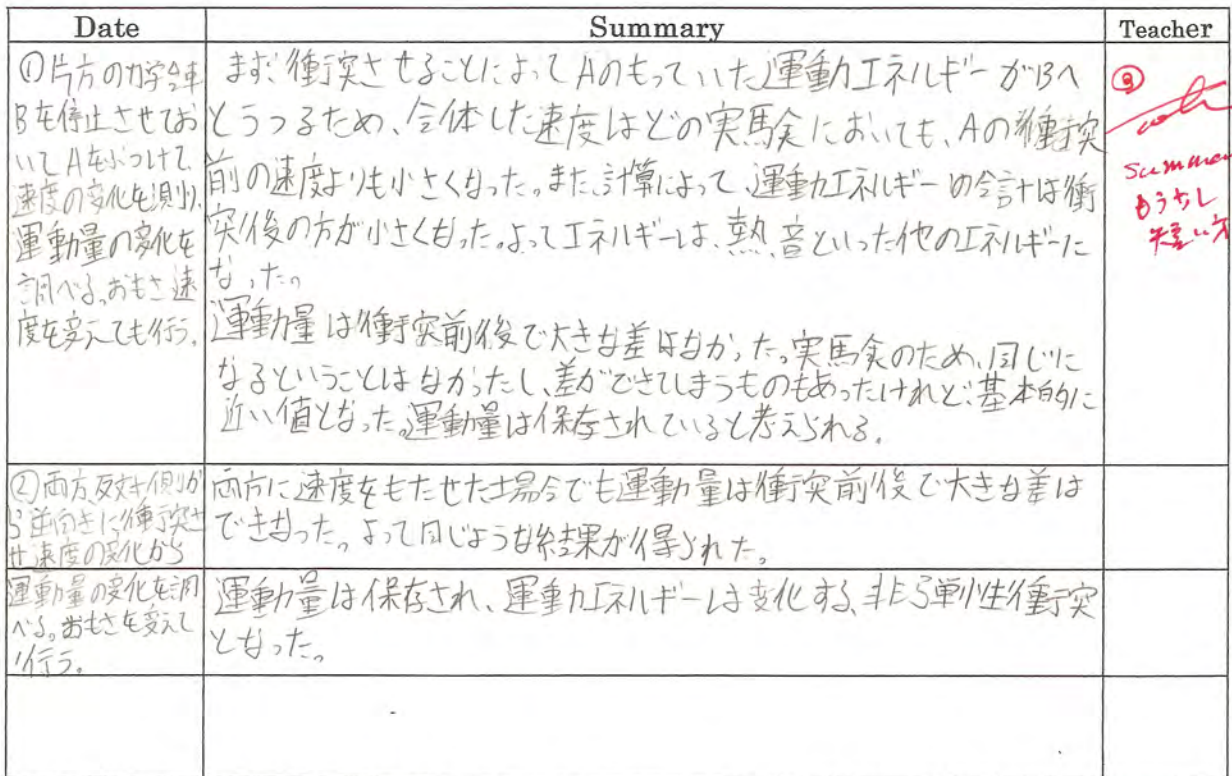 Date
Summary
Teacher
①片方の力学台車
Bを停止させてお
いてAをぶつけて、
速度の変化を測り、
運動量の変化を
調べる。おもさ、速
度を変えても行う。
まず、衝突させることによってAのもっていた運動エネルギーがBへ
とうつるため、合体した速度はどの実験においても、Aの衝突
前の速度よりも小さくなった。また、計算によって、運動エネルギーの合計は衝
突後の方が小さくなった。よってエネルギーは、熱、音といった他のエネルギーに
なった。
運動量は衝突前後で大きな差はなかった。実験のため、同じに
なるということはなかったし、差ができてしまうものもあったけれど、基本的に
近い値となった。運動量は保存されていると考えられる。
summary
もう少し
短い方
②両方、反対側か
ら逆向きに衝突さ
せ速度の変化から
運動量の変化を調
べる。おもさを変えて
行う。
両方に速度をもたせた場合でも運動量は衝突前後で大きな差は
できなった。よって同じような結果が得られた。
運動量は保存され、運動エネルギーは変化する、非弾性衝突
となった。